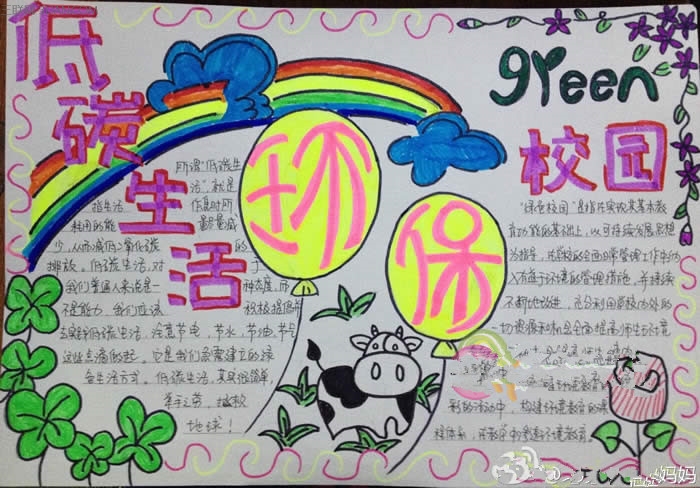 低碳生活
环保
green
校园
所谓"低碳生
活",就是
指生活作息时所
耗用的能量要减
少,从而减低二氧化碳的
排放。低碳生活,对于
我们普通人来说是一种态度,而
不是能力,我们应该积极提倡并
去实践低碳生活,注意节电、节水、节油、节气
这些点滴做起。它是我们急需建立的绿
色生活方式。低碳生活,其实很简单,
举手之劳,拯救
地球!
"绿色校园"是指在实现其基本教
育功能的基础上,以可持续发展思想
为指导,在学校的全面日常管理工作中纳
入有益于环境的管理措施,并持续
不断地改进,充分利用学校内外的
一切资源和机会全面提高师生环境
环境
程体系,在教学中
妈妈